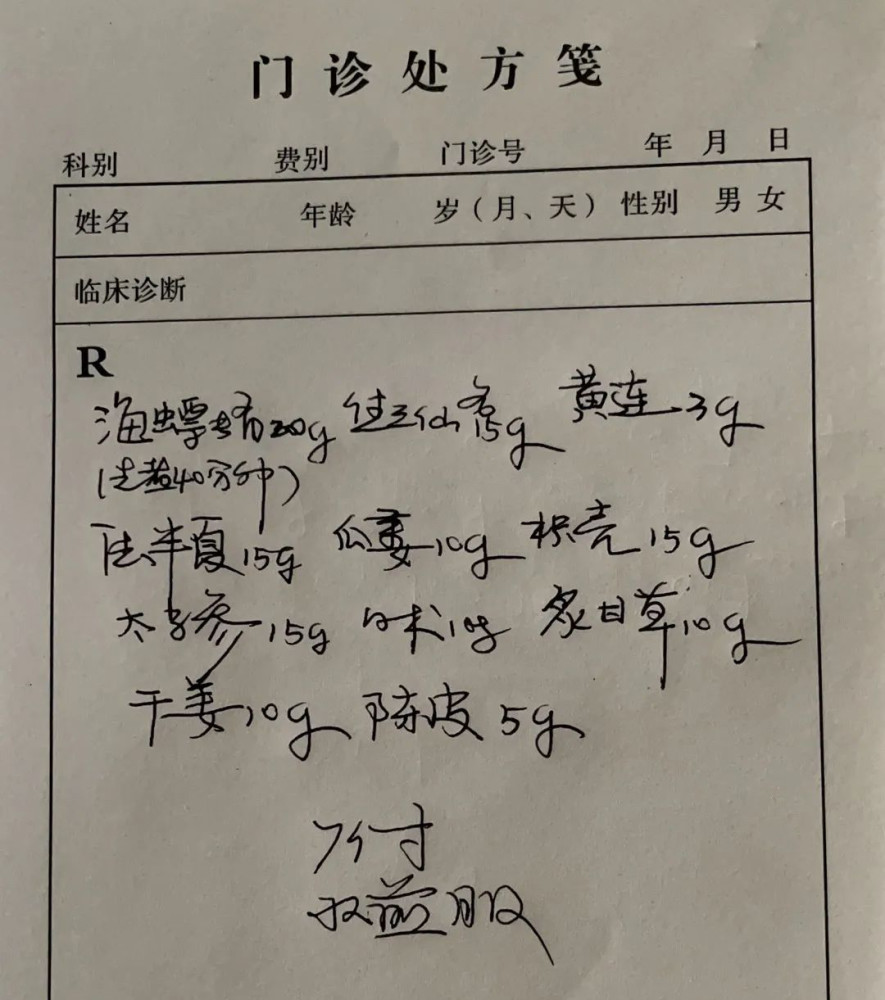 门诊处方笺
科别 费别 门诊号 年 月 日
姓名 年龄 岁（月、天） 性别 男 女
临床诊断
R
海螵蛸20g 红三仙各15g 黄连3g
（先煮40分钟）
法半夏15g 瓜蒌10g 枳壳15g
太子参15g 白术10g 炙甘草10g
干姜10g 陈皮5g
7付
水煎服